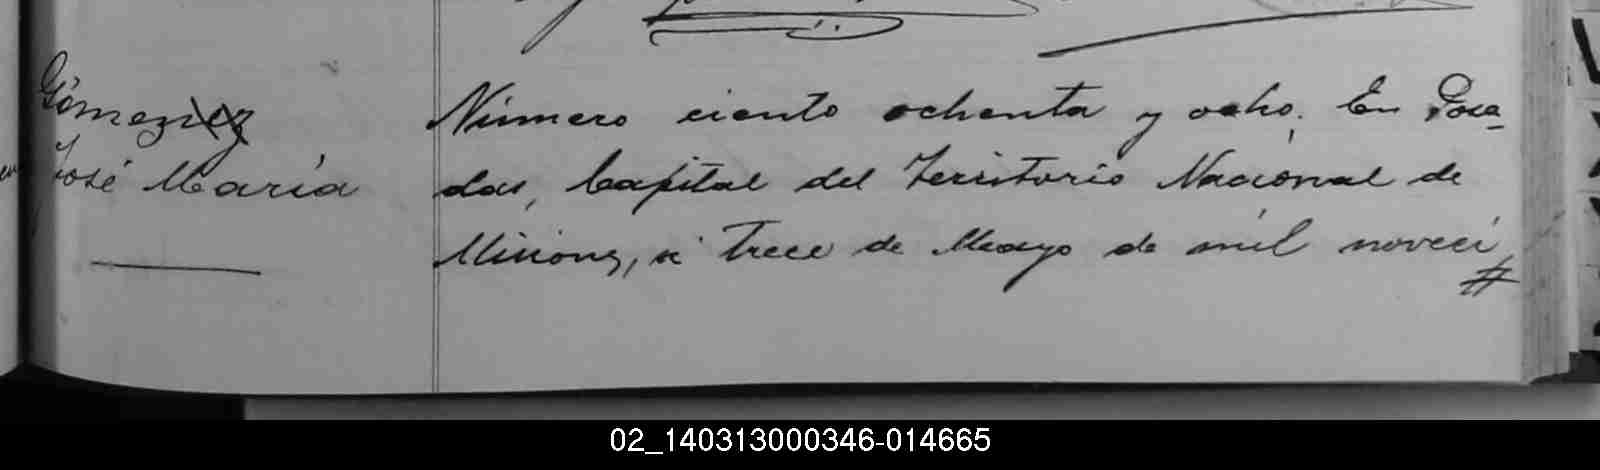 Gómez
José María
Número ciento ochenta y ocho. En Posa-
das, Capital del Territorio Nacional de
Misiones, á trece de Mayo de mil noveci
#
02_140313000346-014665